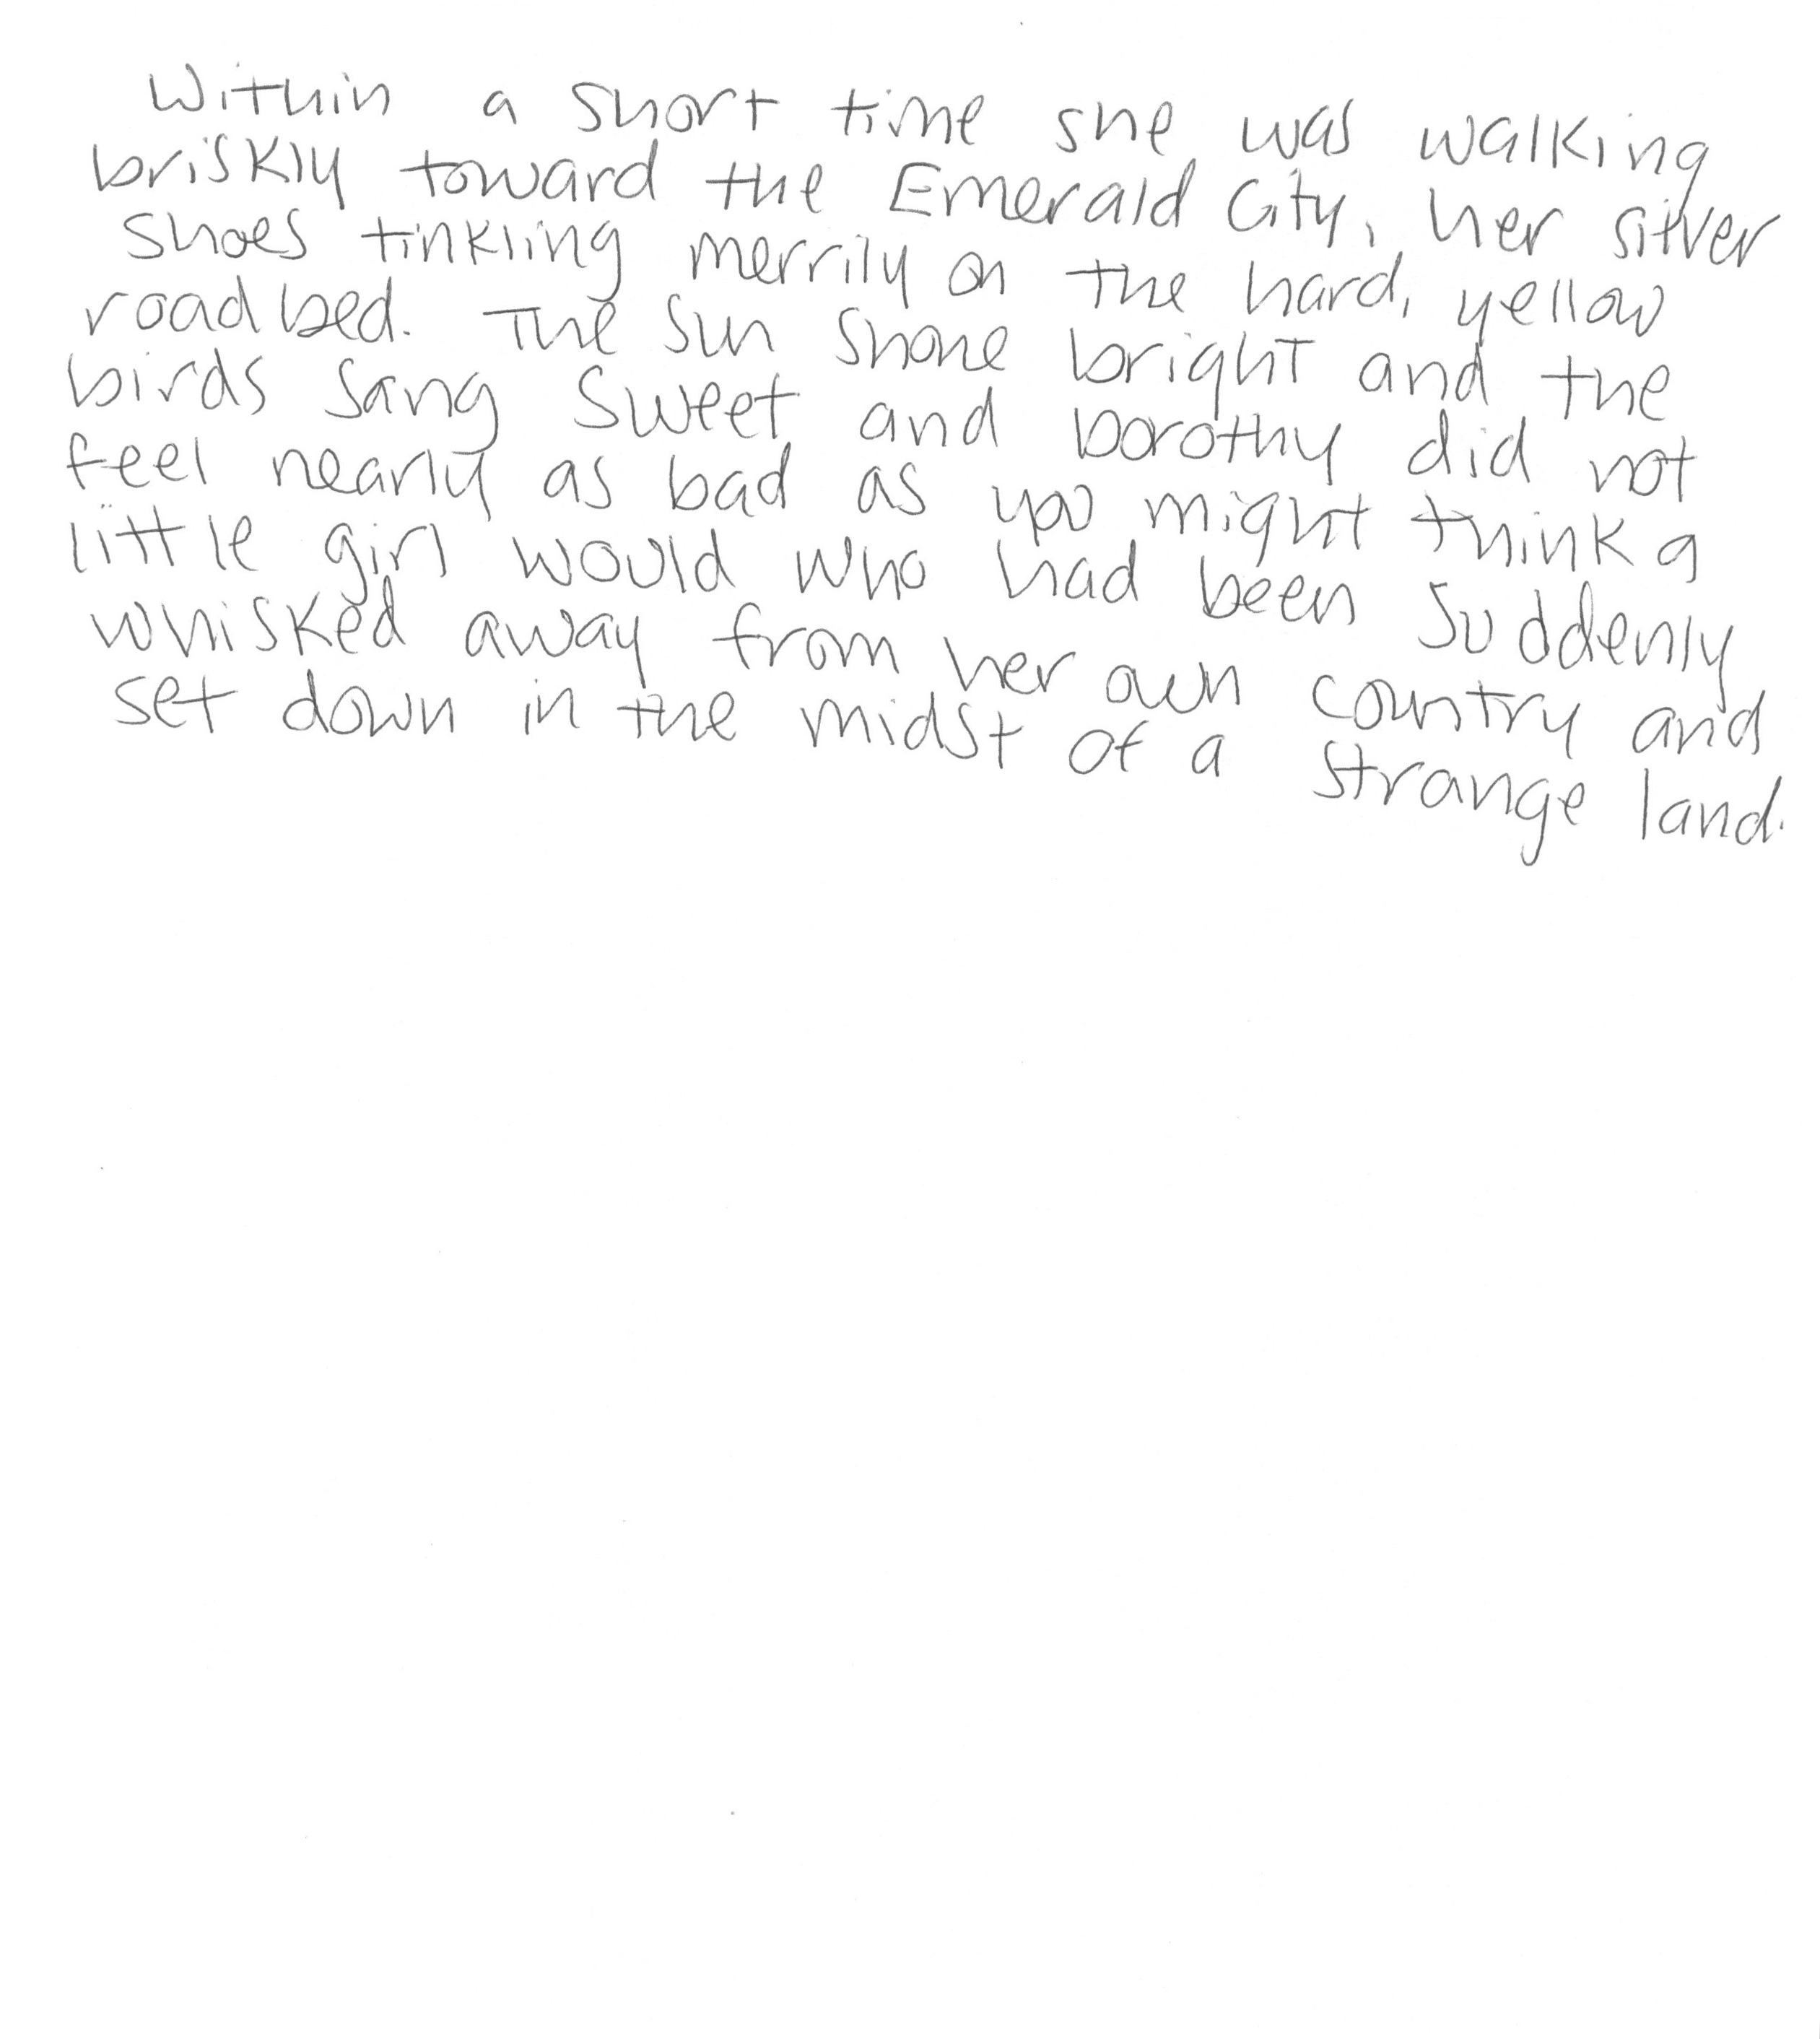 Within a short time she was walking
briskly toward the Emerald City, her silver
shoes tinkling merrily on the hard, yellow
roadbed. The sun shone bright and the
birds sang sweet and Dorothy did not
feel nearly as bad as you might think a
little girl would who had been suddenly
whisked away from her own country and
set down in the midst of a strange land.